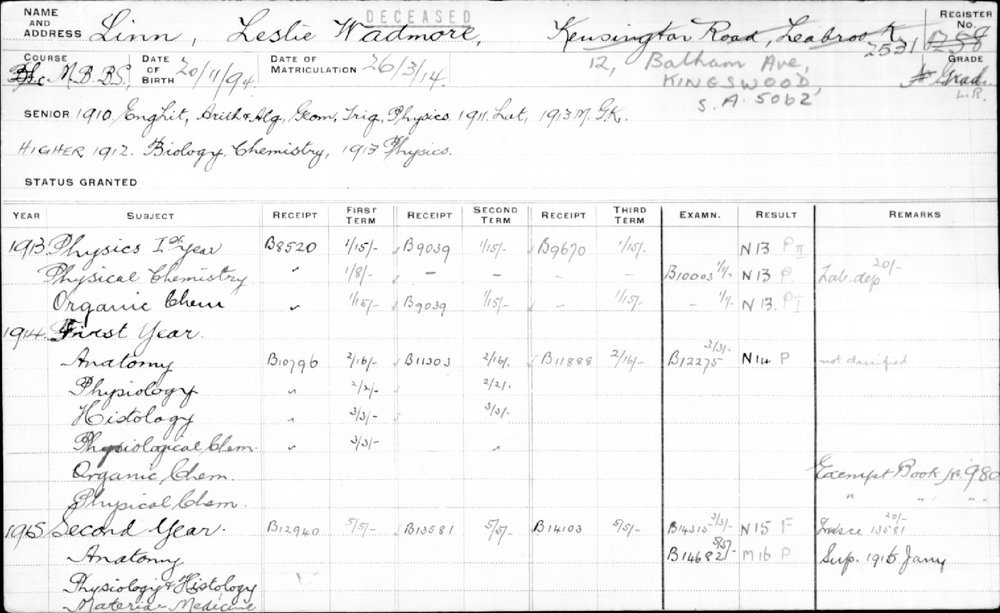 DECEASED
NAME AND ADDRESS Linn, Leslie Wadmore, Kensington Road, Leabrook REGISTER No. 1258 2531
12, Balham Ave,
KINGSWOOD,
S.A. 5062
COURSE BSc M.B.B.S. DATE OF BIRTH 20/11/94. DATE OF MATRICULATION 26/3/14. GRADE Grad. L.R.
SENIOR 1910 Eng Lit, Arith & Alg, Geom, Trig, Physics 1911 Lat, 1913 M. GK.
HIGHER 1912. Biology, Chemistry, 1913 Physics.
STATUS GRANTED
YEAR SUBJECT RECEIPT FIRST TERM RECEIPT SECOND TERM RECEIPT THIRD TERM EXAMN. RESULT REMARKS
1913 Physics Ist Year B8520 1/15/- B9039 1/15/- B9670 1/15/- N13 P II
Physical Chemistry " 1/8/- - - - - B10003 1/1/- N13 P Lab. dep 20/-
Organic Chem " 1/15/- B9039 1/15/- - 1/15/- - 1/1/- N13. PI
1914 First Year.
Anatomy B10796 2/16/- B11303 2/16/. B11888 2/16/- B12275 3/3/- N14 P not classified
Physiology " 2/2/- 2/2/.
Histology " 3/3/- 3/3/-
Physiological Chem. " 3/3/- "
Organic Chem. Exempt Book No. 980
Physical Chem. " " "
1915 Second Year. B12940 5/5/- B13581 5/5/- B14103 5/5/- B14315 3/3/- N15 F 20/- 13581
Anatomy B14682 5/5/- M16 P Sup. 1916 Jany
Physiology & Histology
Materia Medicine